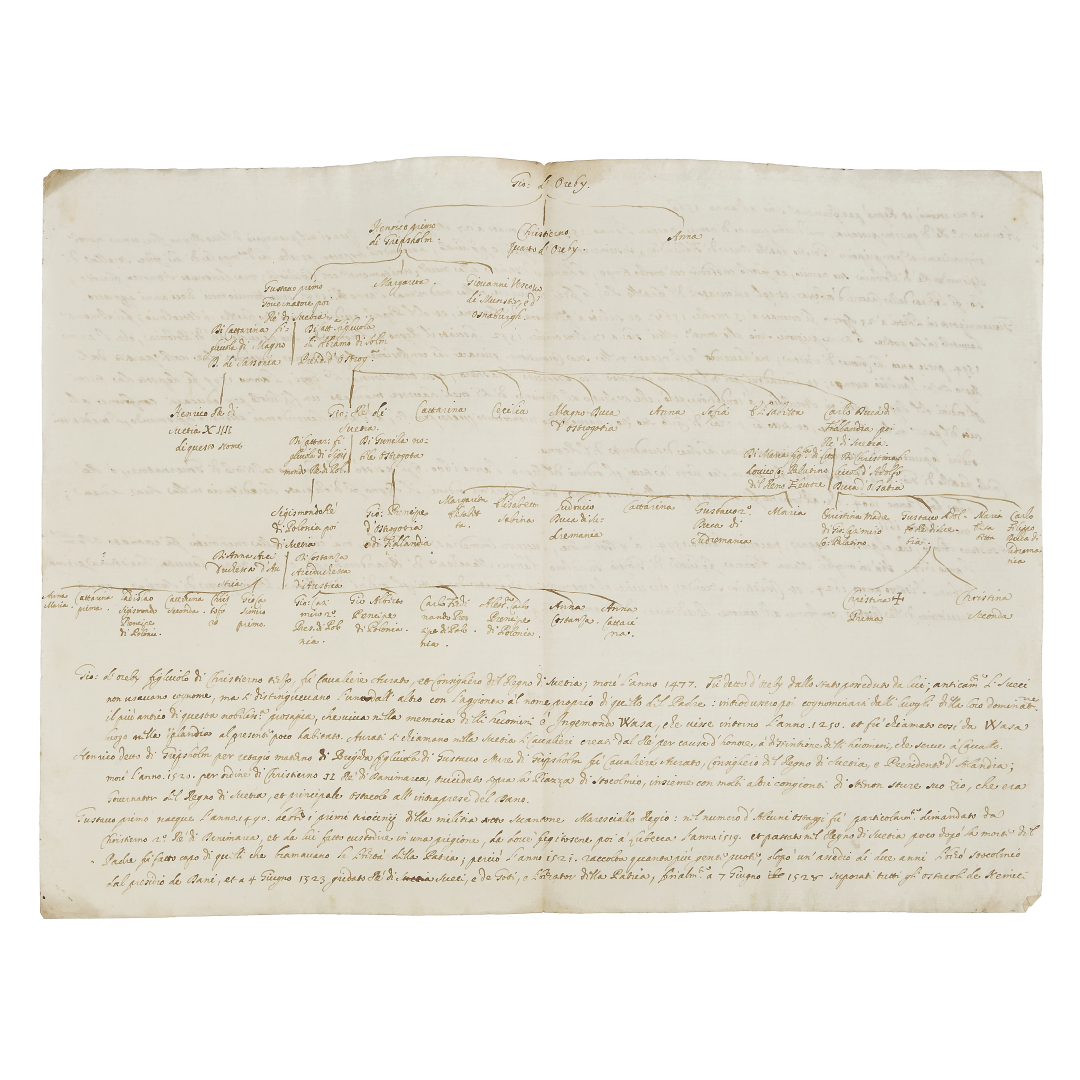 Gio: d'Oreby.
Henrico primo
di Gripsholm.
Christierno
quarto d'Oreby.
Anna.
Gustavo primo
Governatore poi
Rè di Suetia
Margarita.
Giovanni Vescovo
di Munster, ed
Osnaburgh.
Di Cattarina fi-
gliuola di Magno
D. di Sassonia
Di Catt.
di Abramo di
Henrico Rè di
Suetia XIIII
di questo nome
Gio: Rè di
Suetia.
Cattarina
Cecilia
Magno Duca
d'Ostrogotia
Anna
Sofia
Elisabetta
Carlo Duca di
poi
Rè di Suetia.
Di Cattar: fi
gliuola di Sigis
mondo Rè di Pol.
Di Gunila no-
bile Ostrogota
Di Maria
Lovico Co: Palatino
del Reno Elettore
Di Christina fi
d'Adolfo
Duca d'Olsatia
Sigismondo Rè
di Polonia poi
di Suetia
Gio: Principe
d'Ostrogotia
e di Finlandia
Margarita
Elisabet
ta.
Elisabetta
Sabina
Ludovico
Duca di Su-
dermania
Cattarina
Gustavo
Duca di
Sudermania
Maria
Christina Madre
di Carl Gustavo
Co: Palatino
Gustavo Adol-
fo Rè di Sue-
tia.
Maria
Elisa
betta
Carlo
Filippo
Duca di
Suderma-
nia
Di Anna Arci
Duchessa d'Au
stria
Di Costanza
Arciduchessa
d'Austria
Anna
Maria.
Cattarina
prima.
Ladislao
Sigismondo
Prencipe
di Polonia.
Catterina
Seconda.
Chris
toforo
Gio: Ca
simiro
Prec. di Polo
nia.
Gio: Alberto
Prencipe
di Polonia.
Carlo Ferdi
nando Prin
cipe di Polo
nia.
Aless. Carlo
Prencipe
di Polonia.
Anna
Costanza.
Anna
Cattari
na.
Christina
Prima
Christina
Seconda
Gio: d'Oreby figliuolo di Christierno terzo, fù Cavaliere Aurato, et Consigliero del Regno di Suetia; morì l'anno 1477. Fù detto d'Oreby dallo stato posseduto da lui; anticam.te li Sueci
non usavano cognome, ma si distinguevano l'uno dall'altro con l'aggionta al nome proprio di quello del Padre: indi uso poi cognominarsi dalli luoghi della loro
il più antico di questa nobiliss.a prosapia, che viva nella memoria delli recenti è Ingemondo Wasa, che visse intorno l'anno 1250. et fù chiamato così da Wasa
luogo nella Uplandia al presente poco habitato. Aurati si chiamano nella Suetia li Cavalieri creati dal Rè per causa d'honore, à distintione delli che serve à Cavallo.
Henrico detto di Gripsholm per retagio materno di Brigida figliuola di Gustavo Sture di Gripsholm fù Cavaliere Aurato, Consigliero del Regno di Suetia, e Presidente d'Alandia;
morì l'anno 1520. per ordine di Christierno Rè di Danimarca, trucidato sopra la Piazza di Stocolmio, insieme con molti altri congionti di Stenon Sture suo Zio, che era
Governator del Regno di Suetia, et principale ostacolo all'intraprese del Dano.
Gustavo primo nacque l'anno 1490. i primi tirocinij della militia sotto Suantone Maresciallo Regio: nel numero d'alcuni Ostaggi fù particolarm.te dimandato da
Christierno 2.o Rè di Danimarca, et da lui fatto custodire in una prigione, dà dove fuggitosene poi à Lubecca l'anno 1519. et passato nel Regno di Suetia poco dopo la morte del
Padre fù fatto capo di quelli che bramavano la libertà della Patria; perciò l'anno 1521. raccolta quanta più gente puotè, dopo un'assedio di due anni liberò Stocolmio
dal presidio de Dani, et a 4 Giugno 1523 gridato Rè di Sueci, e de Goti, e Liberator della Patria, finalm.te a 7 Giugno 1528 superati tutti gli ostacoli de Nemici